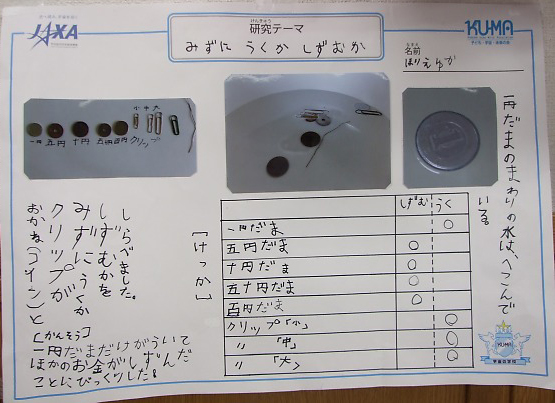 JAXA
けんきゅう
研究テーマ
みずに うくか しずむか
KU-MA
なまえ
名前
ほりえゆか
小 中 大
一円 五円 十円 五十円 百円 クリップ
一円だまのまわりの水は、へこんで
いる。
しずむ うく
一円だま ○
五円だま ○
十円だま ○
五十円だま ○
百円だま ○
クリップ「小」 ○
〃 「中」 ○
〃 「大」 ○
[けっか]
しらべました。
しずむかを
みずにうくか
クリップが
おかね(コイン)と
[かんそう]
一円だまだけがういて
ほかのお金がしずんだ
ことにびっくりした!
KU-MA
宇宙の学校